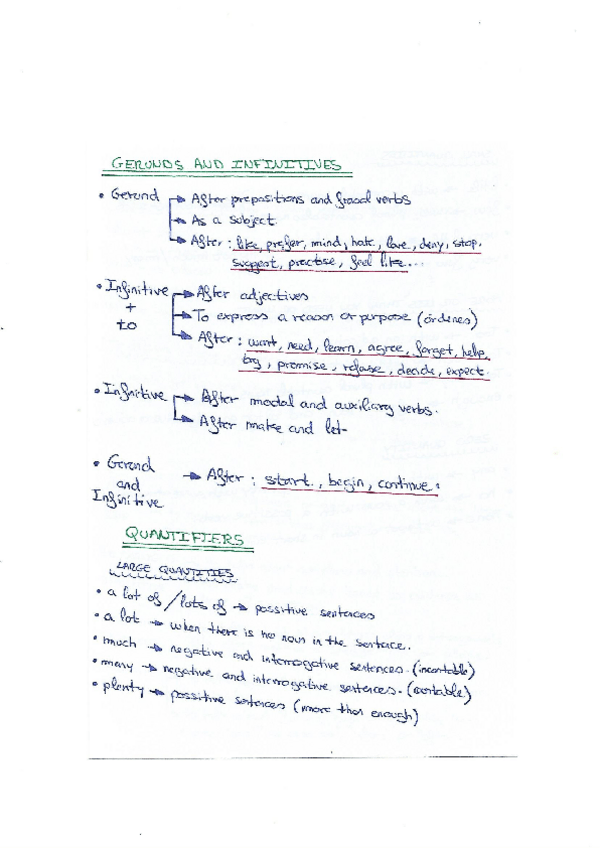 GERUNDS AND INFINITIVES
• Gerund → After prepositions and frasal verbs
→ As a subject
→ After: like, prefer, mind, hate, love, deny, stop,
suggest, practise, feel like...
• Infinitive → After adjectives
+ → To express a reason or purpose (órdenes)
to → After: want, need, learn, agree, forget, help,
try, promise, refuse, decide, expect.
• Infinitive → After modal and auxiliary verbs.
→ After make and let-
• Gerund
and → After: start, begin, continue.
Infinitive
QUANTIFIERS
LARGE QUANTITIES
• a lot of / lots of → possitive sentences
• a lot → when there is no noun in the sentence.
• much → negative and interrogative sentences. (incontable)
• many → negative and interrogative sentences. (contable)
• plenty → possitive sentences (more than enough)